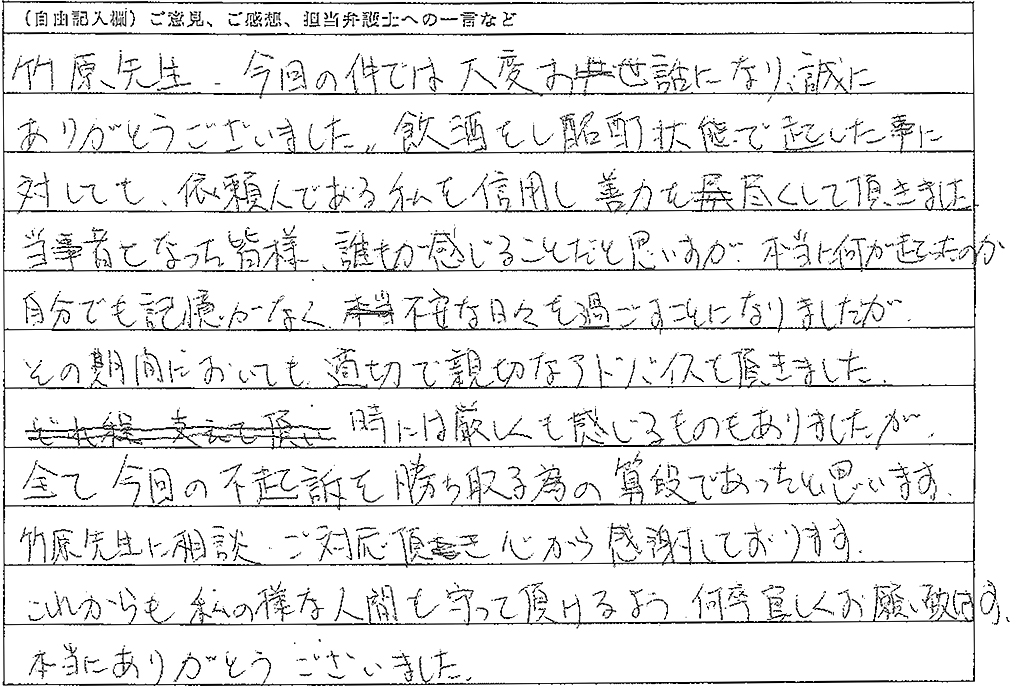 (自由記入欄)ご意見、ご感想、担当弁護士への一言など
竹原先生、今回の件では大変お世話になり、誠に
ありがとうございました。飲酒をし酩酊状態で起こした事に
対しても、依頼人である私を信用し善力を尽くして頂きました
当事者となった皆様、誰もが感じることだと思いますが、本当に何が起こったのか
自分でも記憶がなく、不安な日々を過ごすことになりましたが、
その期間においても、適切で親切なアドバイスを頂きました。
時には厳しくも感じるものもありましたが、
全て今回の不起訴を勝ち取る為の算段であったと思います。
竹原先生に相談、ご対応頂き心から感謝しております。
これからも私の様な人間を守って頂けるよう何卒宜しくお願い致します。
本当にありがとうございました。